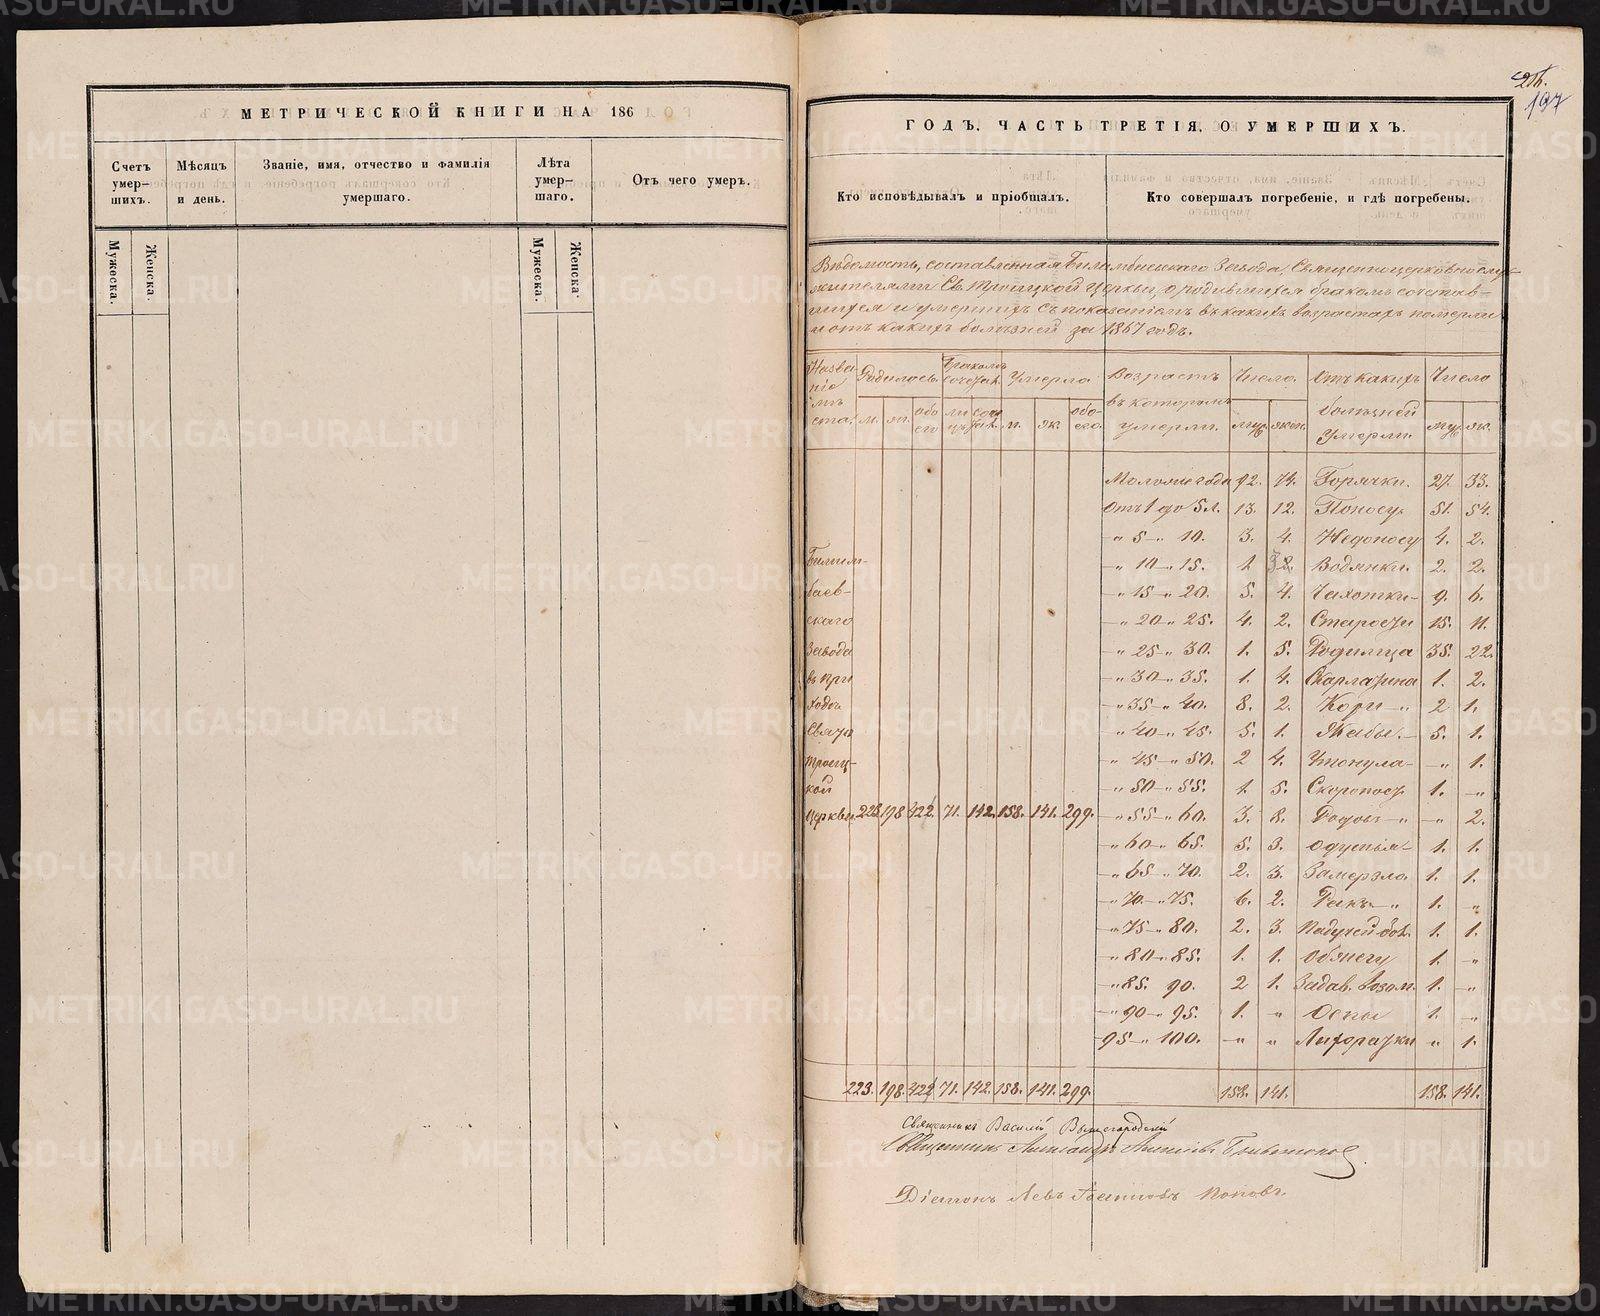 МЕТРИЧЕСКОЙ КНИГИ НА 186
Счетъ умер-шихъ.
Мѣсяцъ и день.
Званіе, имя, отчество и фамилія умершаго.
Лѣта умер-шаго.
Отъ чего умеръ.
Мужеска.
Женска.
Мужеска.
Женска.
197
ГОДЪ. ЧАСТЬ ТРЕТІЯ, О УМЕРШИХЪ.
Кто исповѣдывалъ и пріобщалъ.
Кто совершалъ погребеніе, и гдѣ погребены.
Вѣдомость, составленная Билимбаевскаго Завода, Священноцерковнослу-
жителями Св. Троицкой Церкви, о родившихся бракомъ сочетав-
шихся и умершихъ съ показаніемъ въ какихъ возрастахъ померли
и отъ какихъ болѣзней за 1867 годъ.
Назва-ніе мѣста. Родилось. Бракомъ сочетал. Умерло Возрастъ въ которомъ умерли. Число Отъ какихъ болѣзней умерли. Число
м. ж. обо его м. ж. обо-его. муж. жен. муж. ж.
Моложе года 92. 74. Горячки. 27. 33.
Отъ 1 до 5 л. 13. 12. Поносу 51. 54.
" 5 " 10. 3. 4. Недоносу 4. 2.
Билим- " 10 " 15. 1. 2. Водянки. 2. 2.
баев- " 15 " 20. 5. 4. Чахотки 9. 6.
скаго " 20 " 25. 4. 2. Старости 15. 11.
Завода " 25 " 30. 1. 5. Родимца 35. 22.
въ при " 30 " 35. 1. 4. Скарлатина 1. 2.
ходѣ " 35 " 40. 8. 2. Кори " 2 1.
Свято " 40 " 45. 5. 1. Жабы. 5. 1.
Троиц- " 45 " 50. 2 4. Утонула " 1.
кой " 50 " 55. 1. 5. Скоропост. 1. "
Церкви. 223. 198 422. 71. 142. 158. 141. 299. " 55 " 60. 3. 8. Родовъ " " 2.
" 60 " 65. 5. 3. 1. 1.
" 65 " 70. 2. 3. Замерзло. 1. 1.
" 70 " 75. 6. 2. Ракъ " 1. "
" 75 " 80. 2. 3. Падучей бол. 1. 1.
" 80 " 85. 1. 1. 1. "
" 85. 90. 2 1. Задав. возом. 1. "
" 90 " 95. 1. " Оспы 1. "
95 " 100. " " Лихорадки " 1.
223. 198. 422 71. 142. 158. 141. 299. 158. 141. 158. 141.
Священникъ Василій Вышегородскій
Священникъ Александръ
Діаконъ Левъ Поповъ.
METRIKI.GASO-URAL.RU